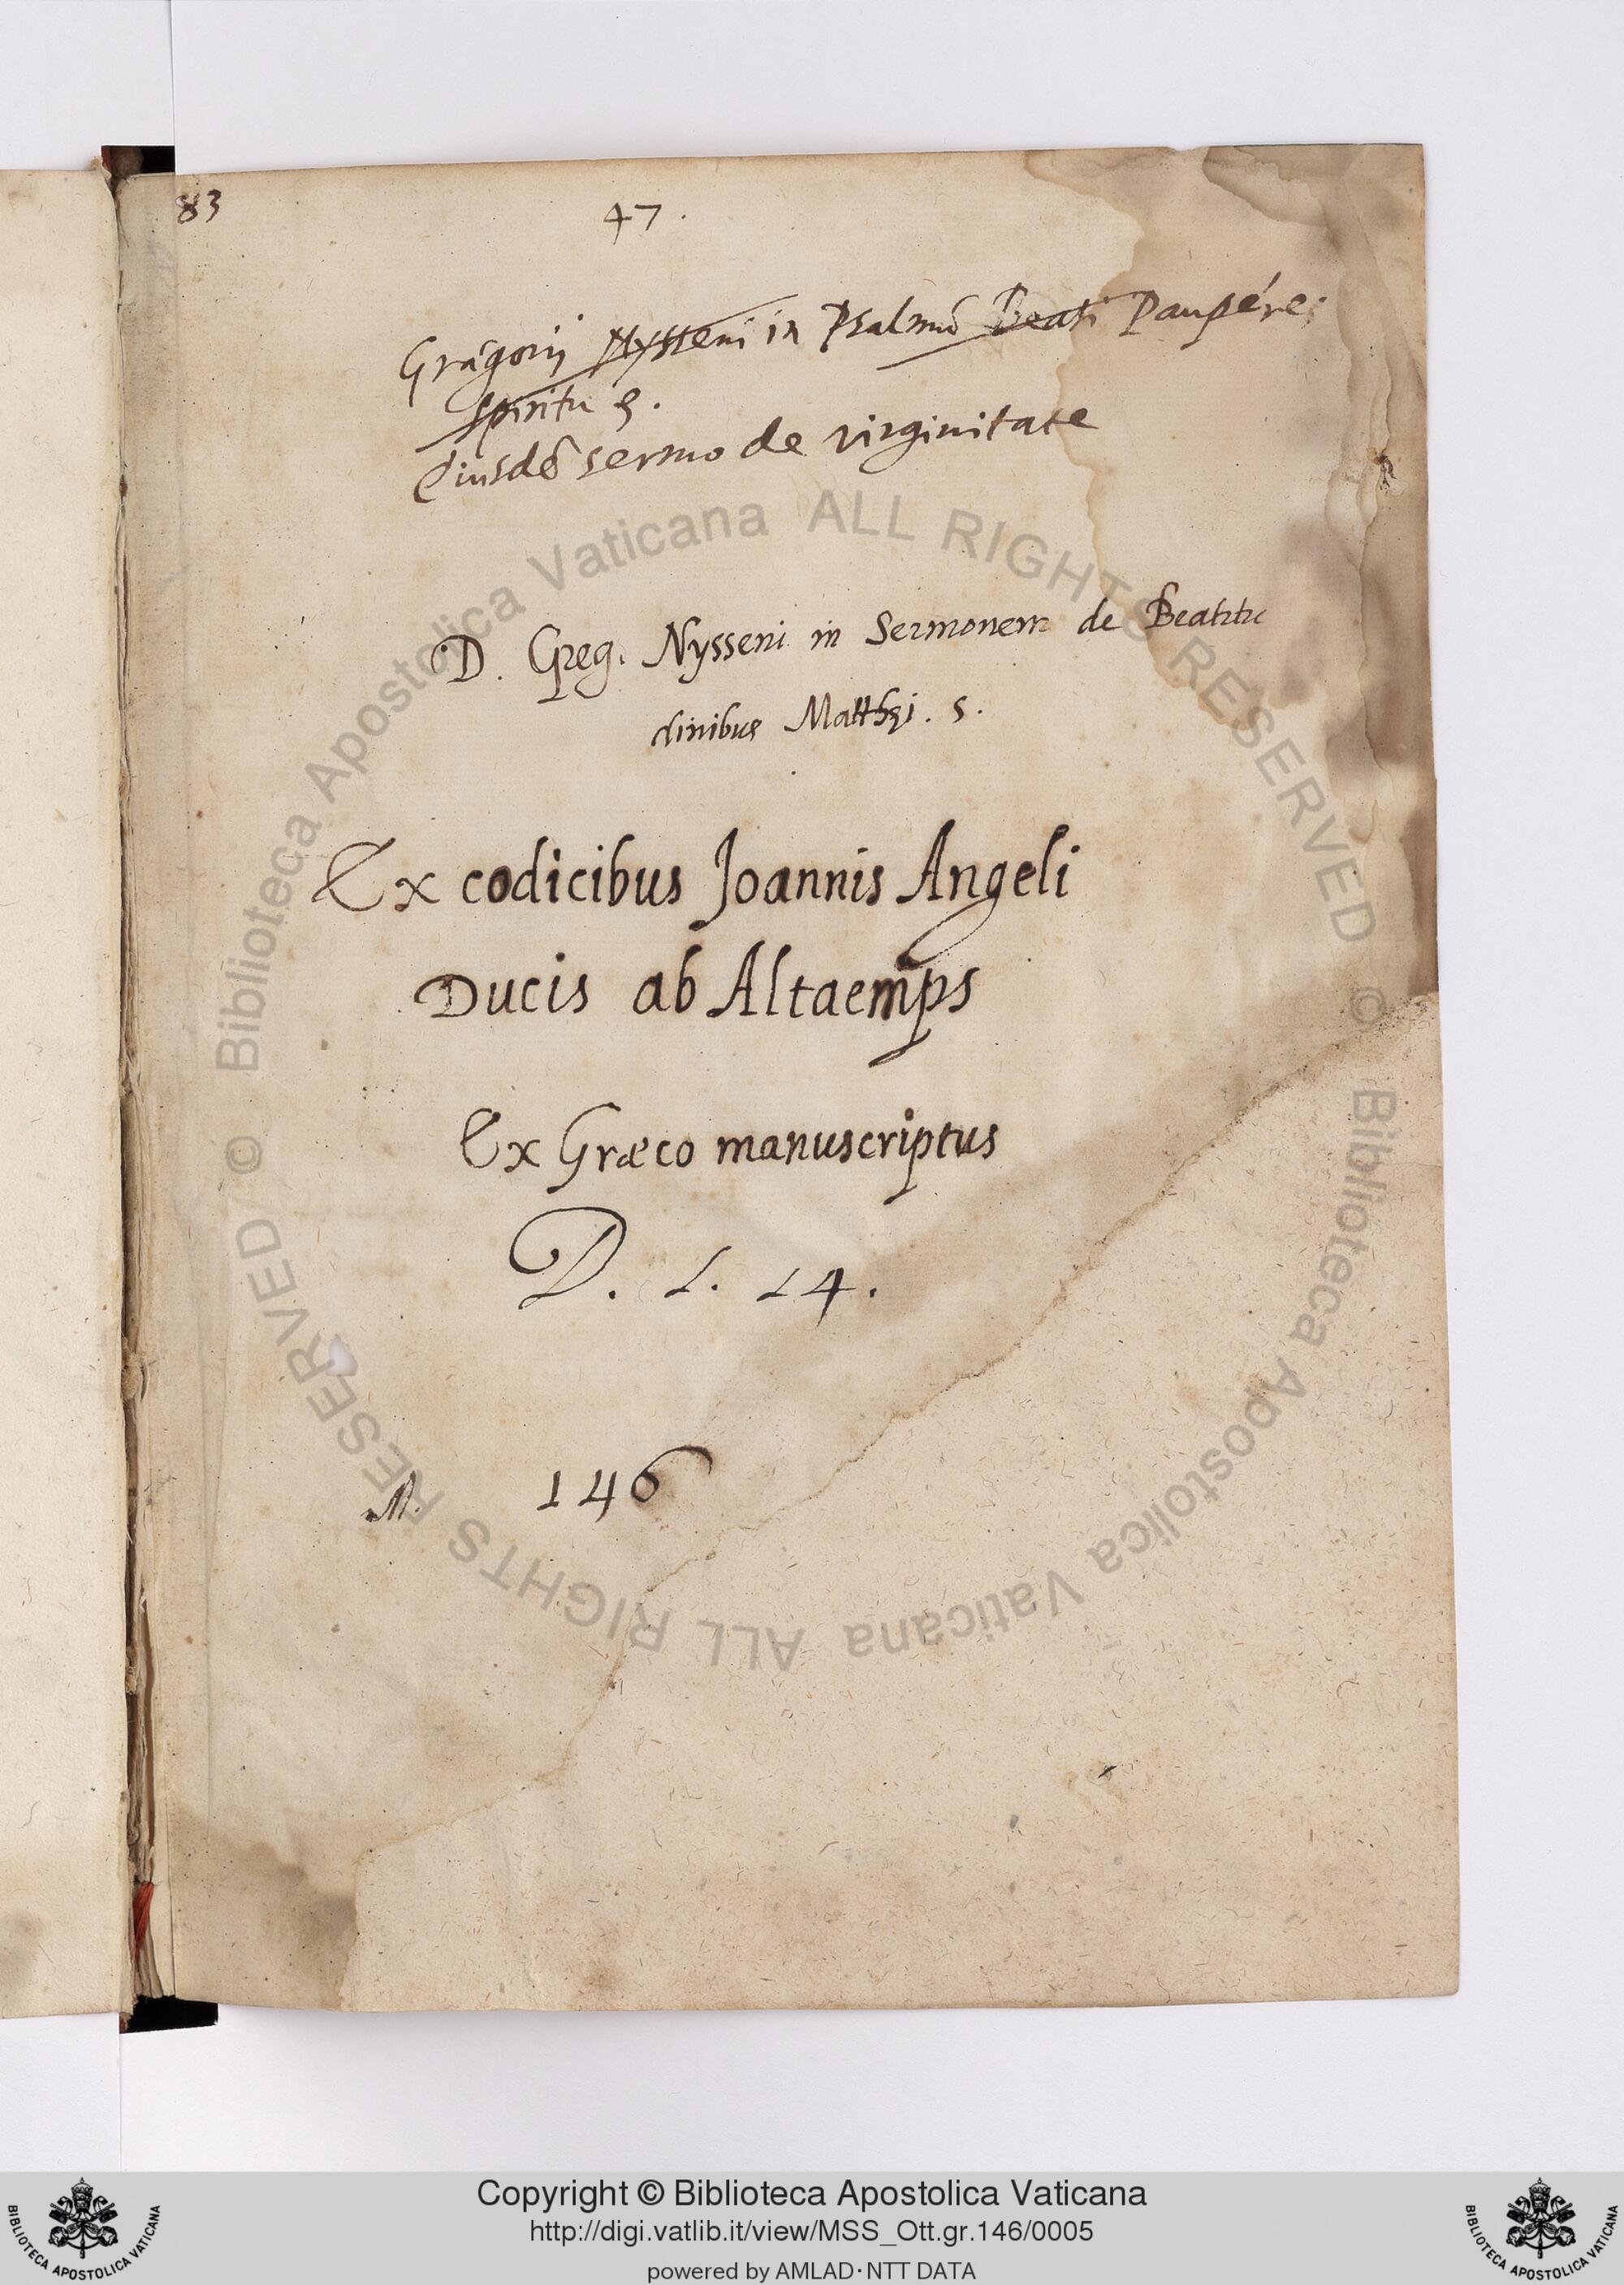 83
47.
Gregorij Nysseni in Psalmũ Beati Paupéres
spiritu &.
Eiusdẽ sermo de virginitate
D. Greg. Nysseni in Sermonem de Beatitu
dinibus Matthęi. 5.
Ex codicibus Joannis Angeli
Ducis ab Altaemps
Ex Græco manuscriptus
D. 1. 14.
M. 146
© Biblioteca Apostolica Vaticana ALL RIGHTS RESERVED
© Biblioteca Apostolica Vaticana ALL RIGHTS RESERVED
Copyright © Biblioteca Apostolica Vaticana
http://digi.vatlib.it/view/MSS_Ott.gr.146/0005
powered by AMLAD·NTT DATA
BIBLIOTECA APOSTOLICA VATICANA
BIBLIOTECA APOSTOLICA VATICANA